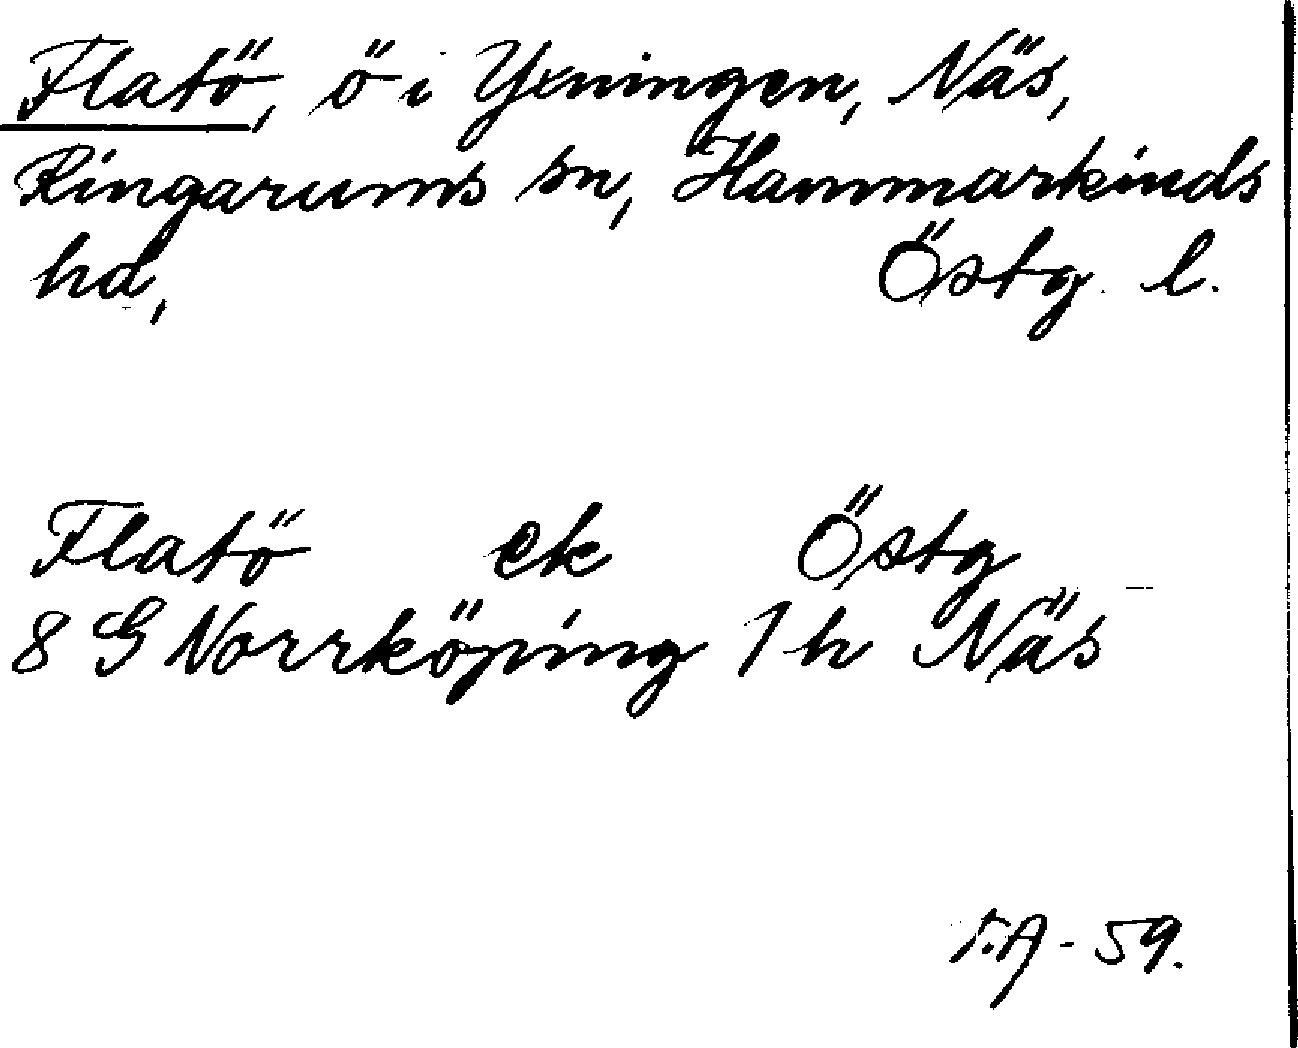 Flatö, ö i Yxningen, Näs,
Ringarums sn, Hammarkinds
hd, Östg. l.
Flatö ek Östg
8 G Norrköping 1 h Näs
F.A - 59.